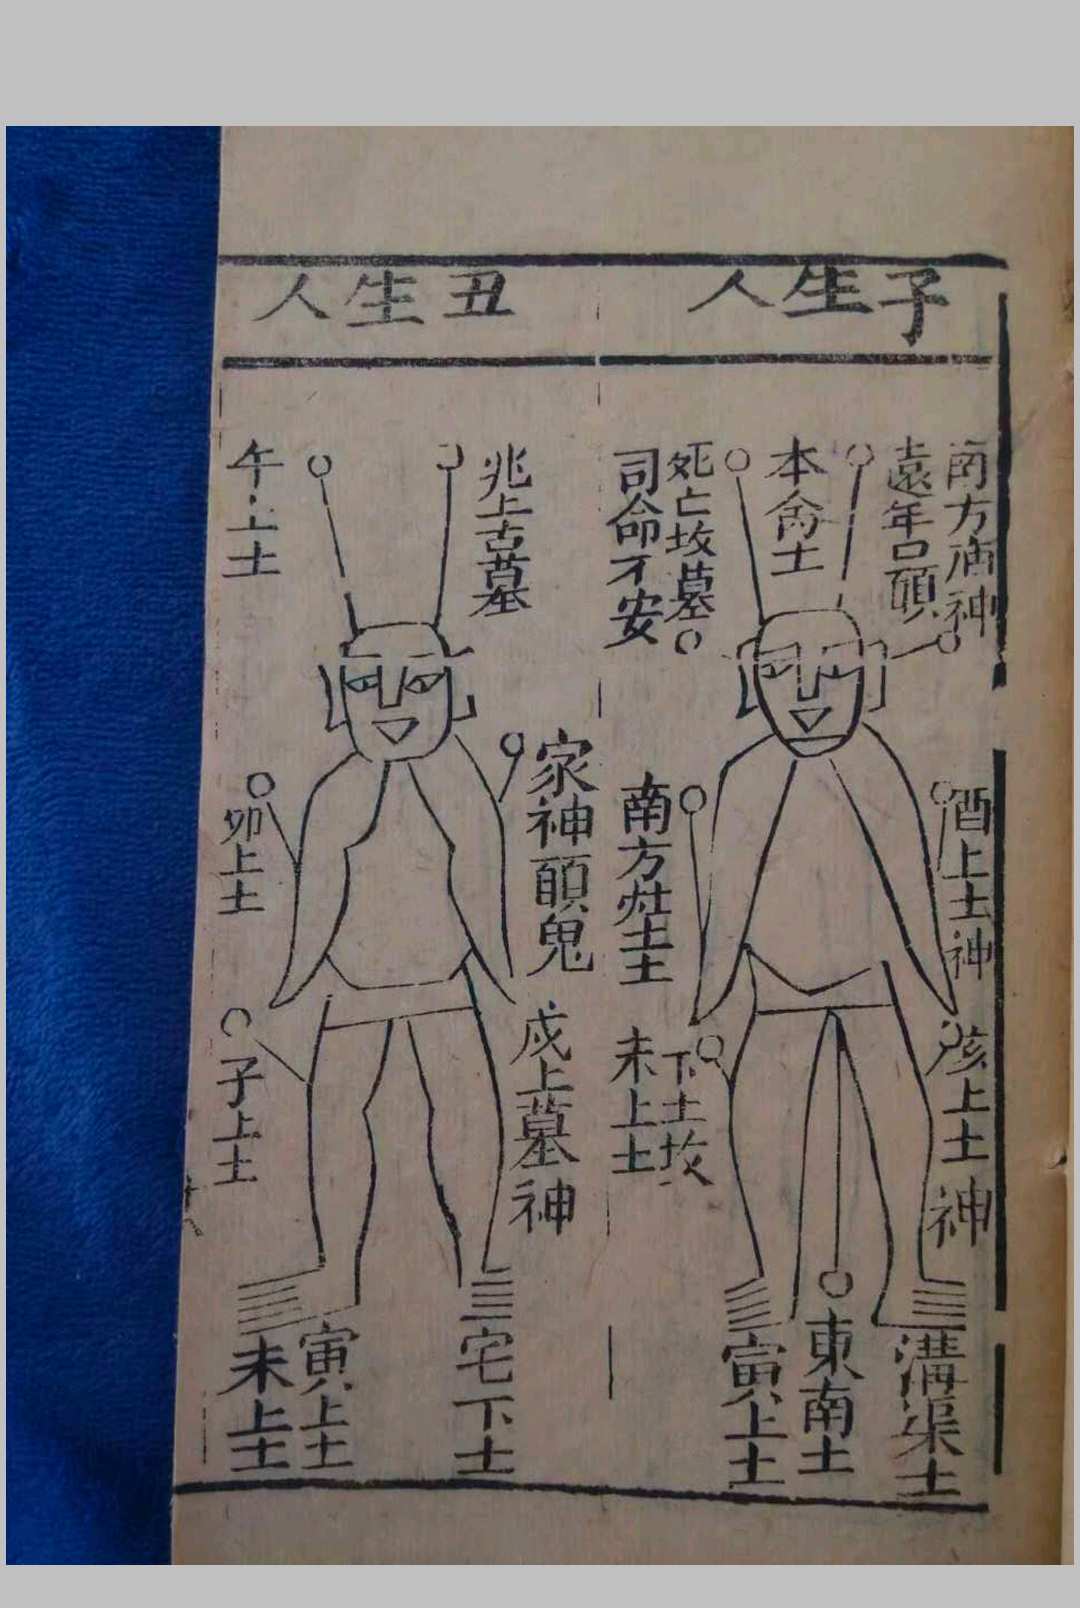 子生人
南方庙神
遠年口願
本命土
死亡坟墓
司命不安
酉上土神
亥上土神
南方灶土
下土坟
未上土
溝渠土
東南土
寅上土
丑生人
兆上古墓
午上土
家神願鬼
卯上土
戍上墓神
子上土
宅下土
寅上土
未上土